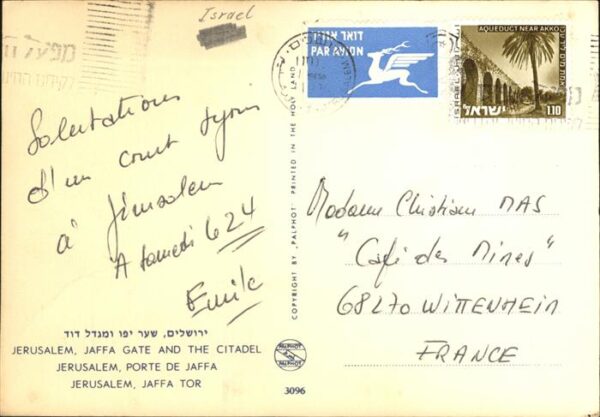 Israel
דואר אויר
PAR AVION
AQUEDUCT NEAR AKKO
ISRAEL
ישראל
1.10
Salutations
d'un court séjour
à Jérusalem
A samedi 6 24
Emile
ירושלים, שער יפו ומגדל דוד
JERUSALEM, JAFFA GATE AND THE CITADEL
JERUSALEM, PORTE DE JAFFA
JERUSALEM, JAFFA TOR
COPYRIGHT BY "PALPHOT" PRINTED IN THE HOLY LAND
PALPHOT
3096
Madame Christian MAS
"Café des Mines"
68270 WITTENHEIM
FRANCE